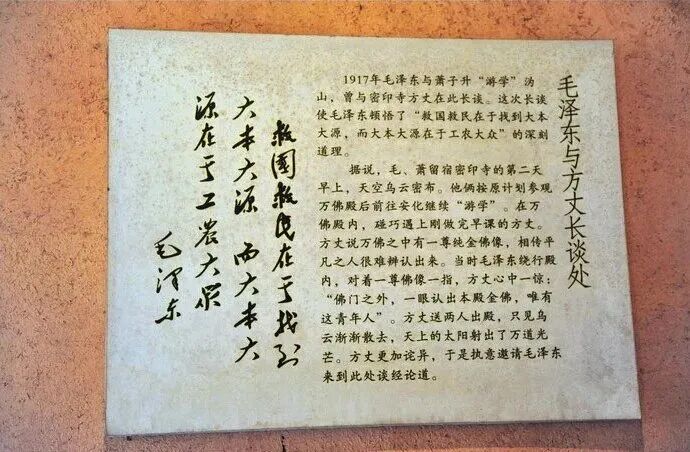 毛泽东与方丈长谈处
1917年毛泽东与萧子升“游学”沩
山，曾与密印寺方丈在此长谈。这次长谈
使毛泽东顿悟了“救国救民在于找到大本
大源，而大本大源在于工农大众”的深刻
道理。
据说，毛、萧留宿密印寺的第二天
早上，天空乌云密布。他俩按原计划参观
万佛殿后前往安化继续“游学”。在万
佛殿内，碰巧遇上刚做完早课的方丈。
方丈说万佛之中有一尊纯金佛像，相传平
凡之人很难辨认出来。当时毛泽东绕行殿
内，对着一尊佛像一指，方丈心中一惊：
“佛门之外，一眼认出本殿金佛，唯有
这青年人”。方丈送两人出殿，只见乌
云渐渐散去，天上的太阳射出了万道光
芒。方丈更加诧异，于是执意邀请毛泽东
来到此处谈经论道。
救国救民在于找到
大本大源 而大本大
源在于工农大众
毛泽东